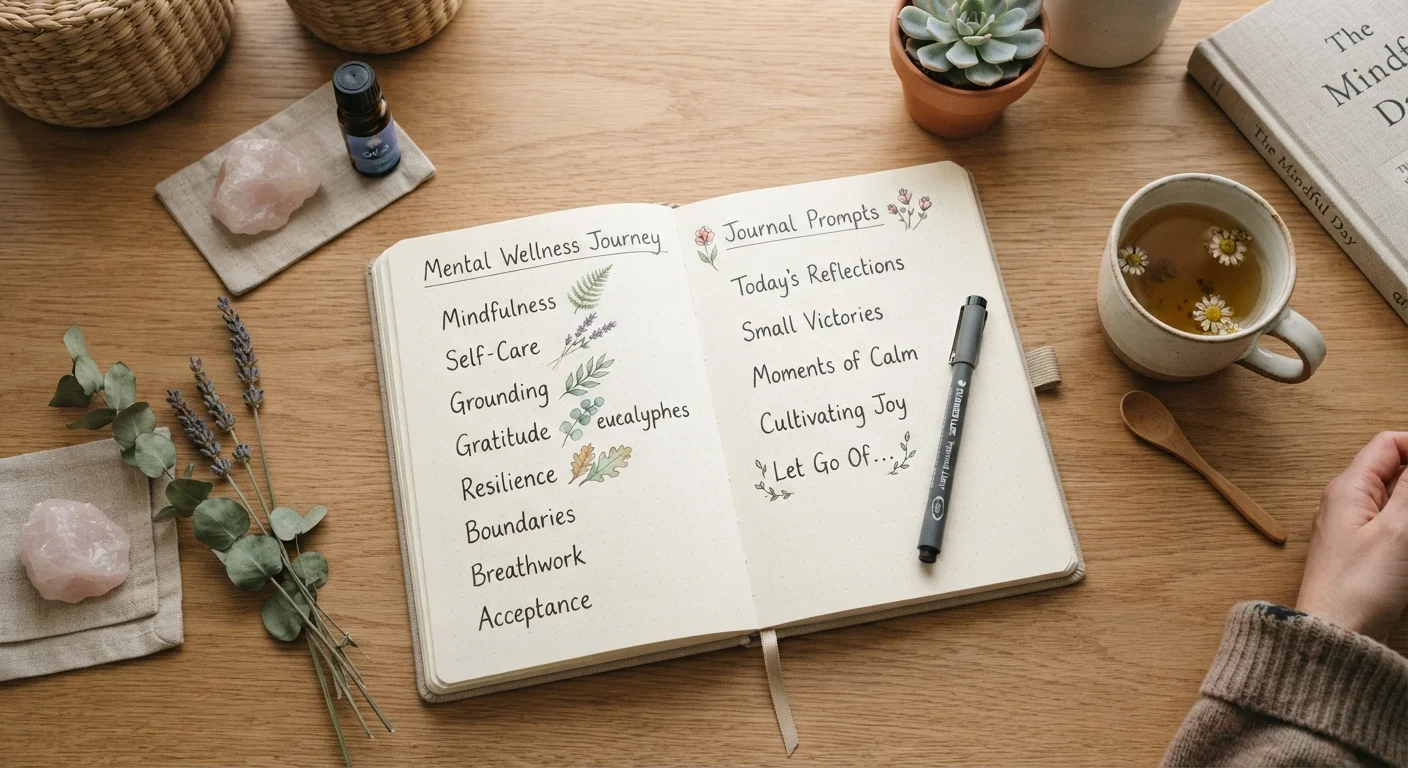 Mental Wellness Journey
Mindfulness
Self-Care
Grounding
Gratitude eucalyphes
Resilience
Boundaries
Breathwork
Acceptance
Journal Prompts
Today's Reflections
Small Victories
Moments of Calm
Cultivating Joy
Let Go Of...
The
Mindf
Da
The Mindful Day